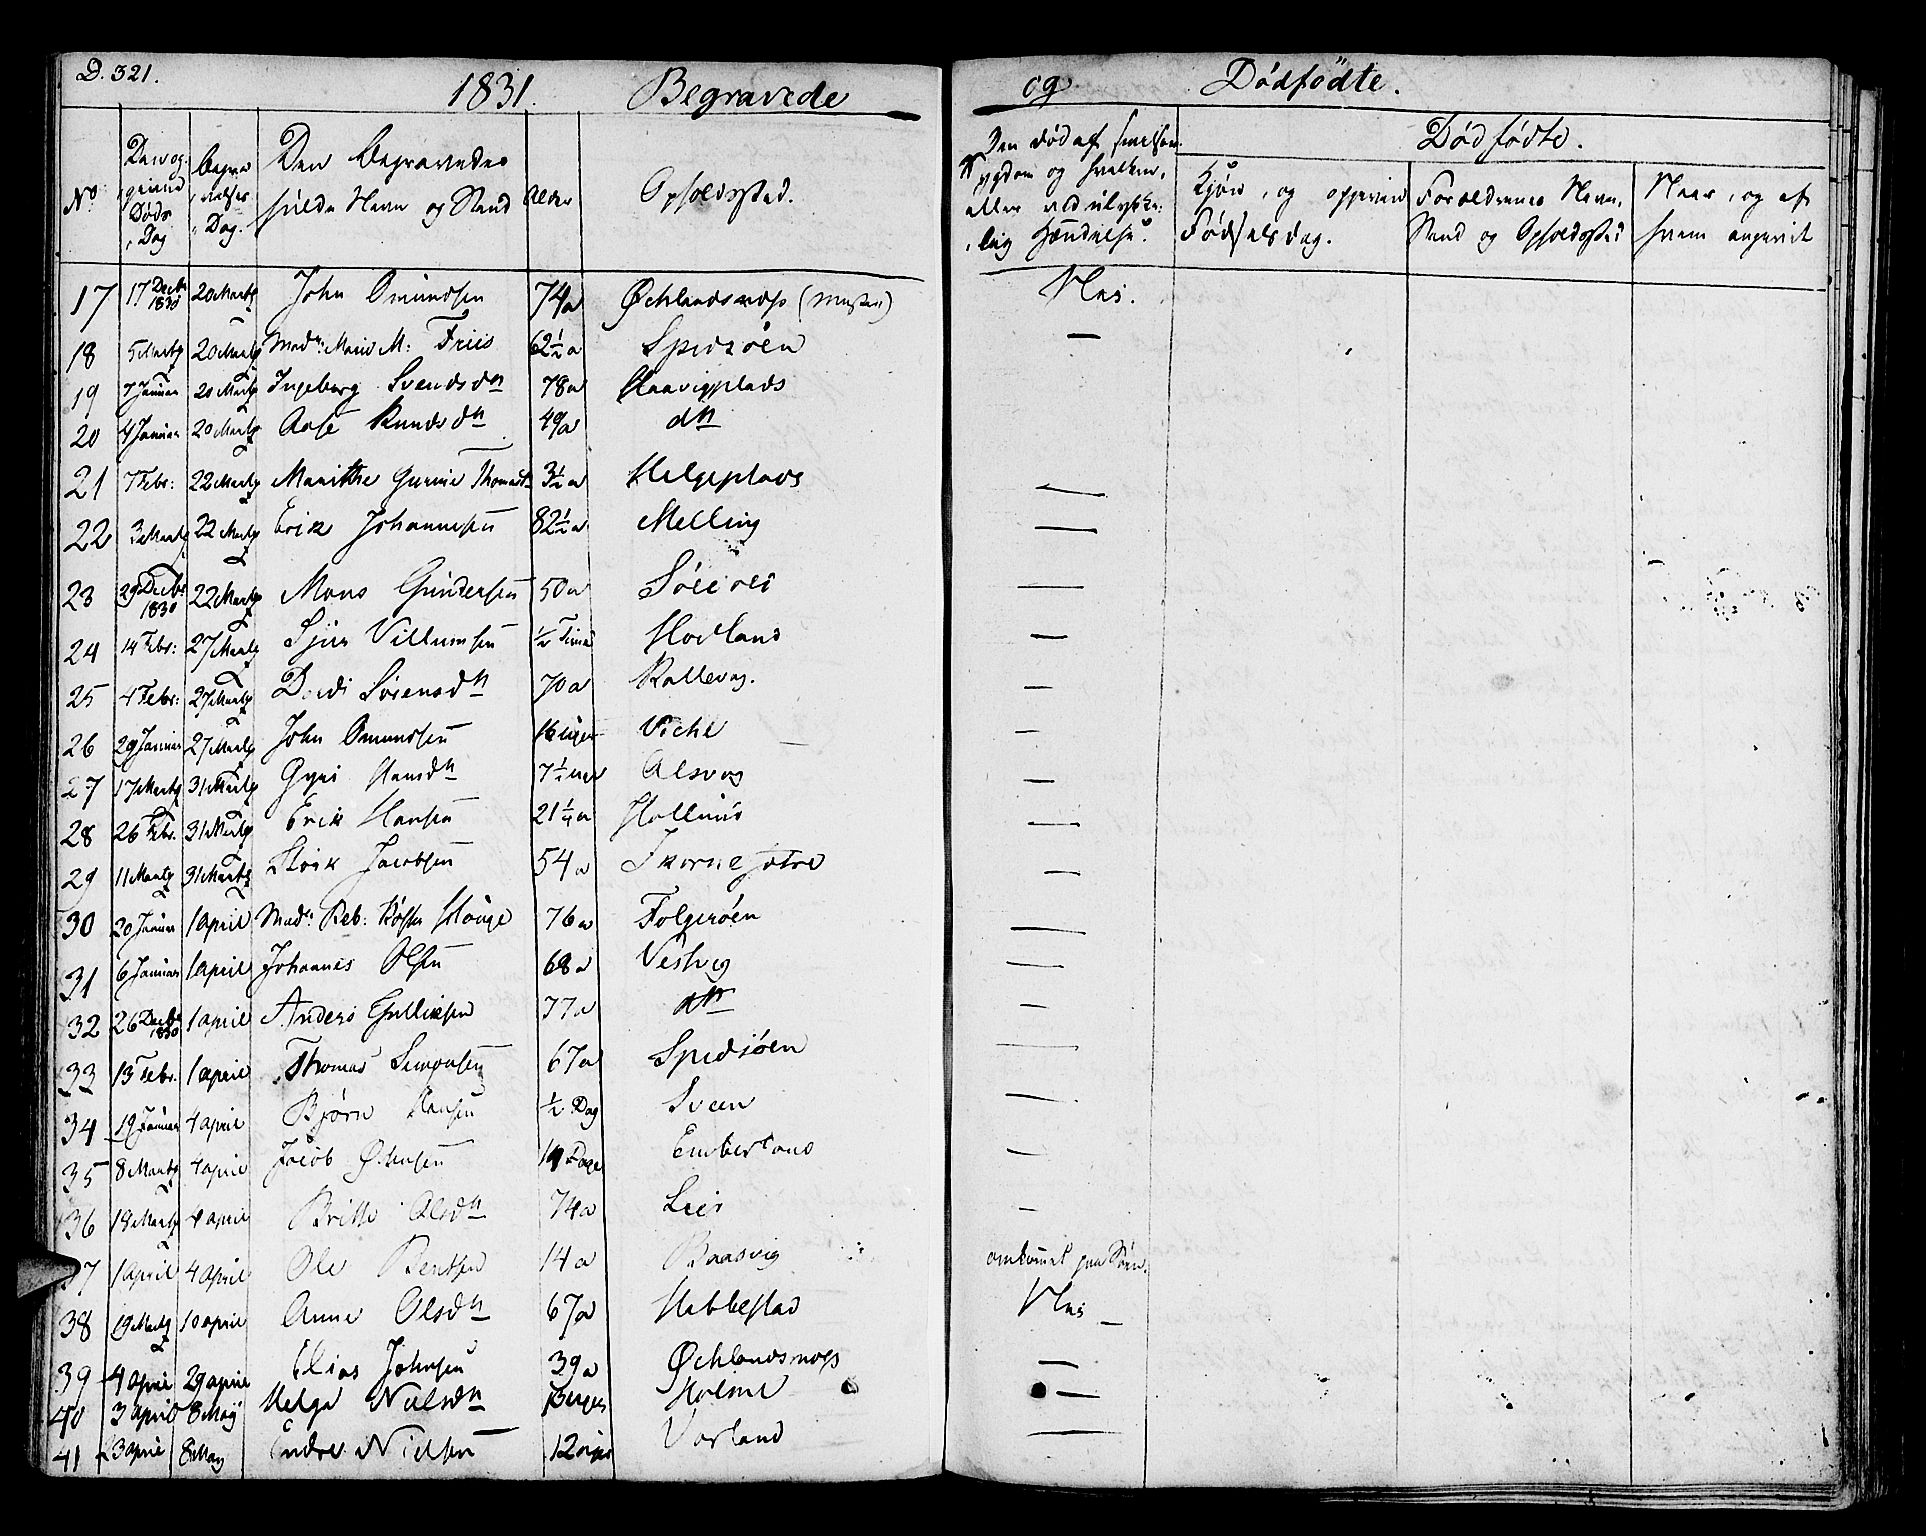 D. 321.
1831. Begravede og Dödfödte.
No Dag Döds Dag
Begra velses Dag.
Den Begravedes fulde Navn og Stand
Alder
Opholdssted.
Den död af Sygdom og hvilken, eller
Dödfödte.
Kjön, og Födselsdag.
Forældrenes Navn, Stand og Opholdssted
Naar, og af hvem angivet
17 17 Decbr 1830 20 Martz John Omundsen 74 a Øchlandsnæss Nei.
18 5 Martz 20 Martz Madm Marie M: Friis 62½ a Spidsöen —
19 7 Januar 20 Martz Ingeborg Svendsdn 78 a Haavigplads
20 4 Januar 20 Martz Aase Knudsdn 49 a dn
21 7 Febr: 22 Martz Marithe Gurine 3½ a Helgeplads —
22 3 Martz 22 Martz Erik Johannesen 82½ a Melling —
23 29 Decbr 1830 22 Martz Mons Gundersen 50 a —
24 14 Febr: 27 Martz Sjur Villumsen ½ Time Hovland —
25 4 Febr: 27 Martz Dordi Sörensdn 70 a Kallevag. —
26 29 Januar 27 Martz John Omundsen 16 uger Viche —
27 17 Martz 31 Martz Gyri Hansdn Alsvag —
28 26 Febr. 31 Martz Erik Hansen 21¼ a Hollund —
29 11 Martz 31 Martz Störk Jacobsen 54 a —
30 20 Januar 1 april Madm Reb: 76 a Folgeröen —
31 6 Januar 1 april Johannes Olsen 68 a Vestvig —
32 26 Decbr 1830 1 april Anders Gulliksen 77 a dn —
33 13 Febr. 1 april Thomas Simonsen 67 a Spidsöen —
34 19 Januar 4 april Björn Hansen ½ Dag Sveen —
35 8 Martz 4 april Jacob 14 Dage Emberland —
36 18 Martz 4 april Britte Olsdn 74 a Lier —
37 1 april 4 april Ole Bentsen 14 a Baasvig omkommet paa Söen.
38 19 Martz 10 april Anne Olsdn 67 a Hebbestad Nei —
39 4 april 29 april Elias Johnsen 39 a Øchlandsnæs —
40 3 april 8 May Helga Nielsdn Holme —
41 3 april 8 May Endre Nielsen 12 uger Vorland —